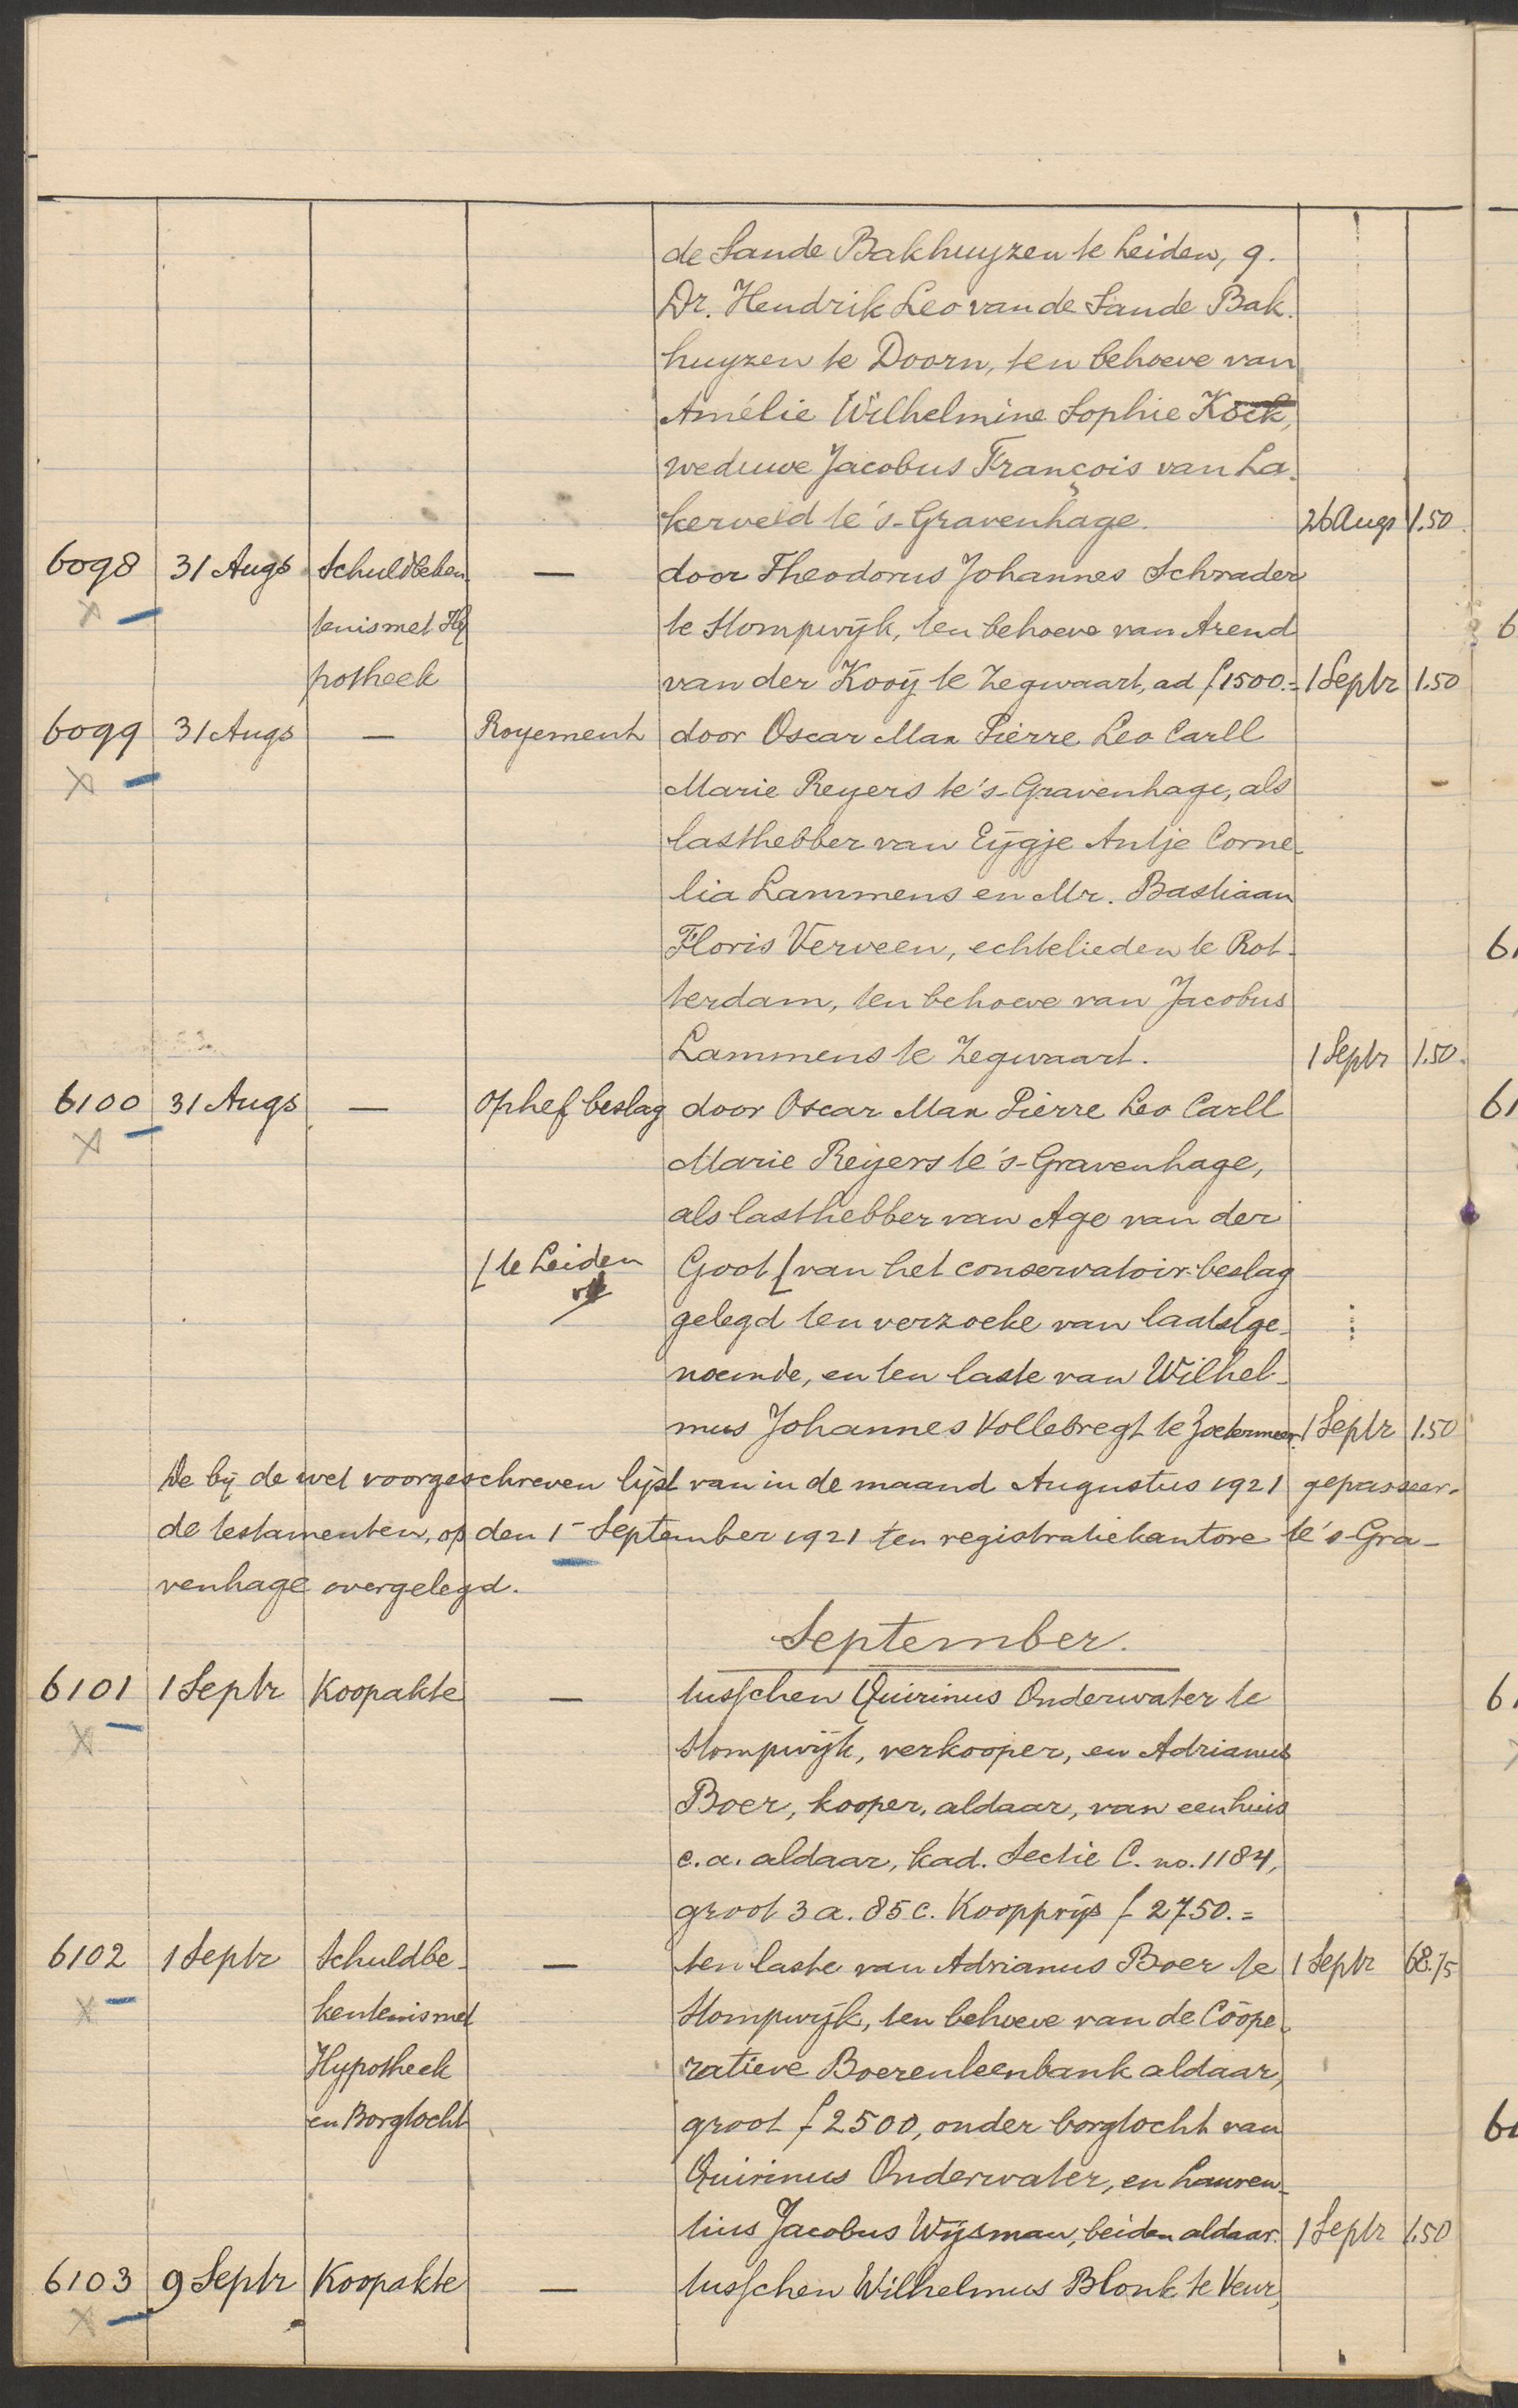 de Sande Bakhuyzen te Leiden, 9.
Dr. Hendrik Leo van de Sande Bak.
huyzen te Doorn, ten behoeve van
Amélie Wilhelmine Sophie Köck,
weduwe Jacobus François van La.
kerveld te 's-Gravenhage. 26 Augs 1.50.
6098 31 Augs Schuldbeken — door Theodorus Johannes Schrader
tenis met Hy te Stompwijk, ten behoeve van Arend
potheek van der Kooij te Zegwaart, ad f 1500.= 1 Septr 1.50
6099 31 Augs — Royement door Oscar Max Pierre Leo Carll
Marie Reyers te 's-Gravenhage, als
lasthebber van Eijgje Antje Corne-
lia Lammens en Mr. Bastiaan
Floris Verveen, echtelieden te Rot-
terdam, ten behoeve van Jacobus
Lammens te Zegwaart. 1 Septr 1.50.
6100 31 Augs — Ophef beslag door Oscar Max Pierre Leo Carll
Marie Reijers te 's-Gravenhage,
als lasthebber van Age van der
[te Leiden Goot [van het conservatoir beslag
gelegd ten verzoeke van laatstge-
noemde, en ten laste van Wilhel-
mus Johannes Vollebregt te Zoetermeer. 1 Septr 1.50
De bij de wet voorgeschreven lijst van in de maand Augustus 1921 gepasseer-
de testamenten, op den 1 September 1921 ten registratiekantore te 's-Gra-
venhage overgelegd.
September.
6101 1 Septr Koopakte — tusschen Quirinus Onderwater te
Stompwijk, verkooper, en Adrianus
Boer, kooper, aldaar, van een huis
c.a. aldaar, kad. Sectie C. no. 1184,
groot 3 a. 85 c. Koopprijs f 2750.=
6102 1 Septr Schuldbe- — ten laste van Adrianus Boer te 1 Septr 68.75
kentenis met Stompwijk, ten behoeve van de Coöpe-
Hypotheek ratieve Boerenleenbank aldaar,
en Borgtocht groot f 2500, onder borgtocht van
Quirinus Onderwater, en Lauren-
tius Jacobus Wijsman, beiden aldaar. 1 Septr 1.50
6103 9 Septr Koopakte — tusschen Wilhelmus Blonk te Veur,